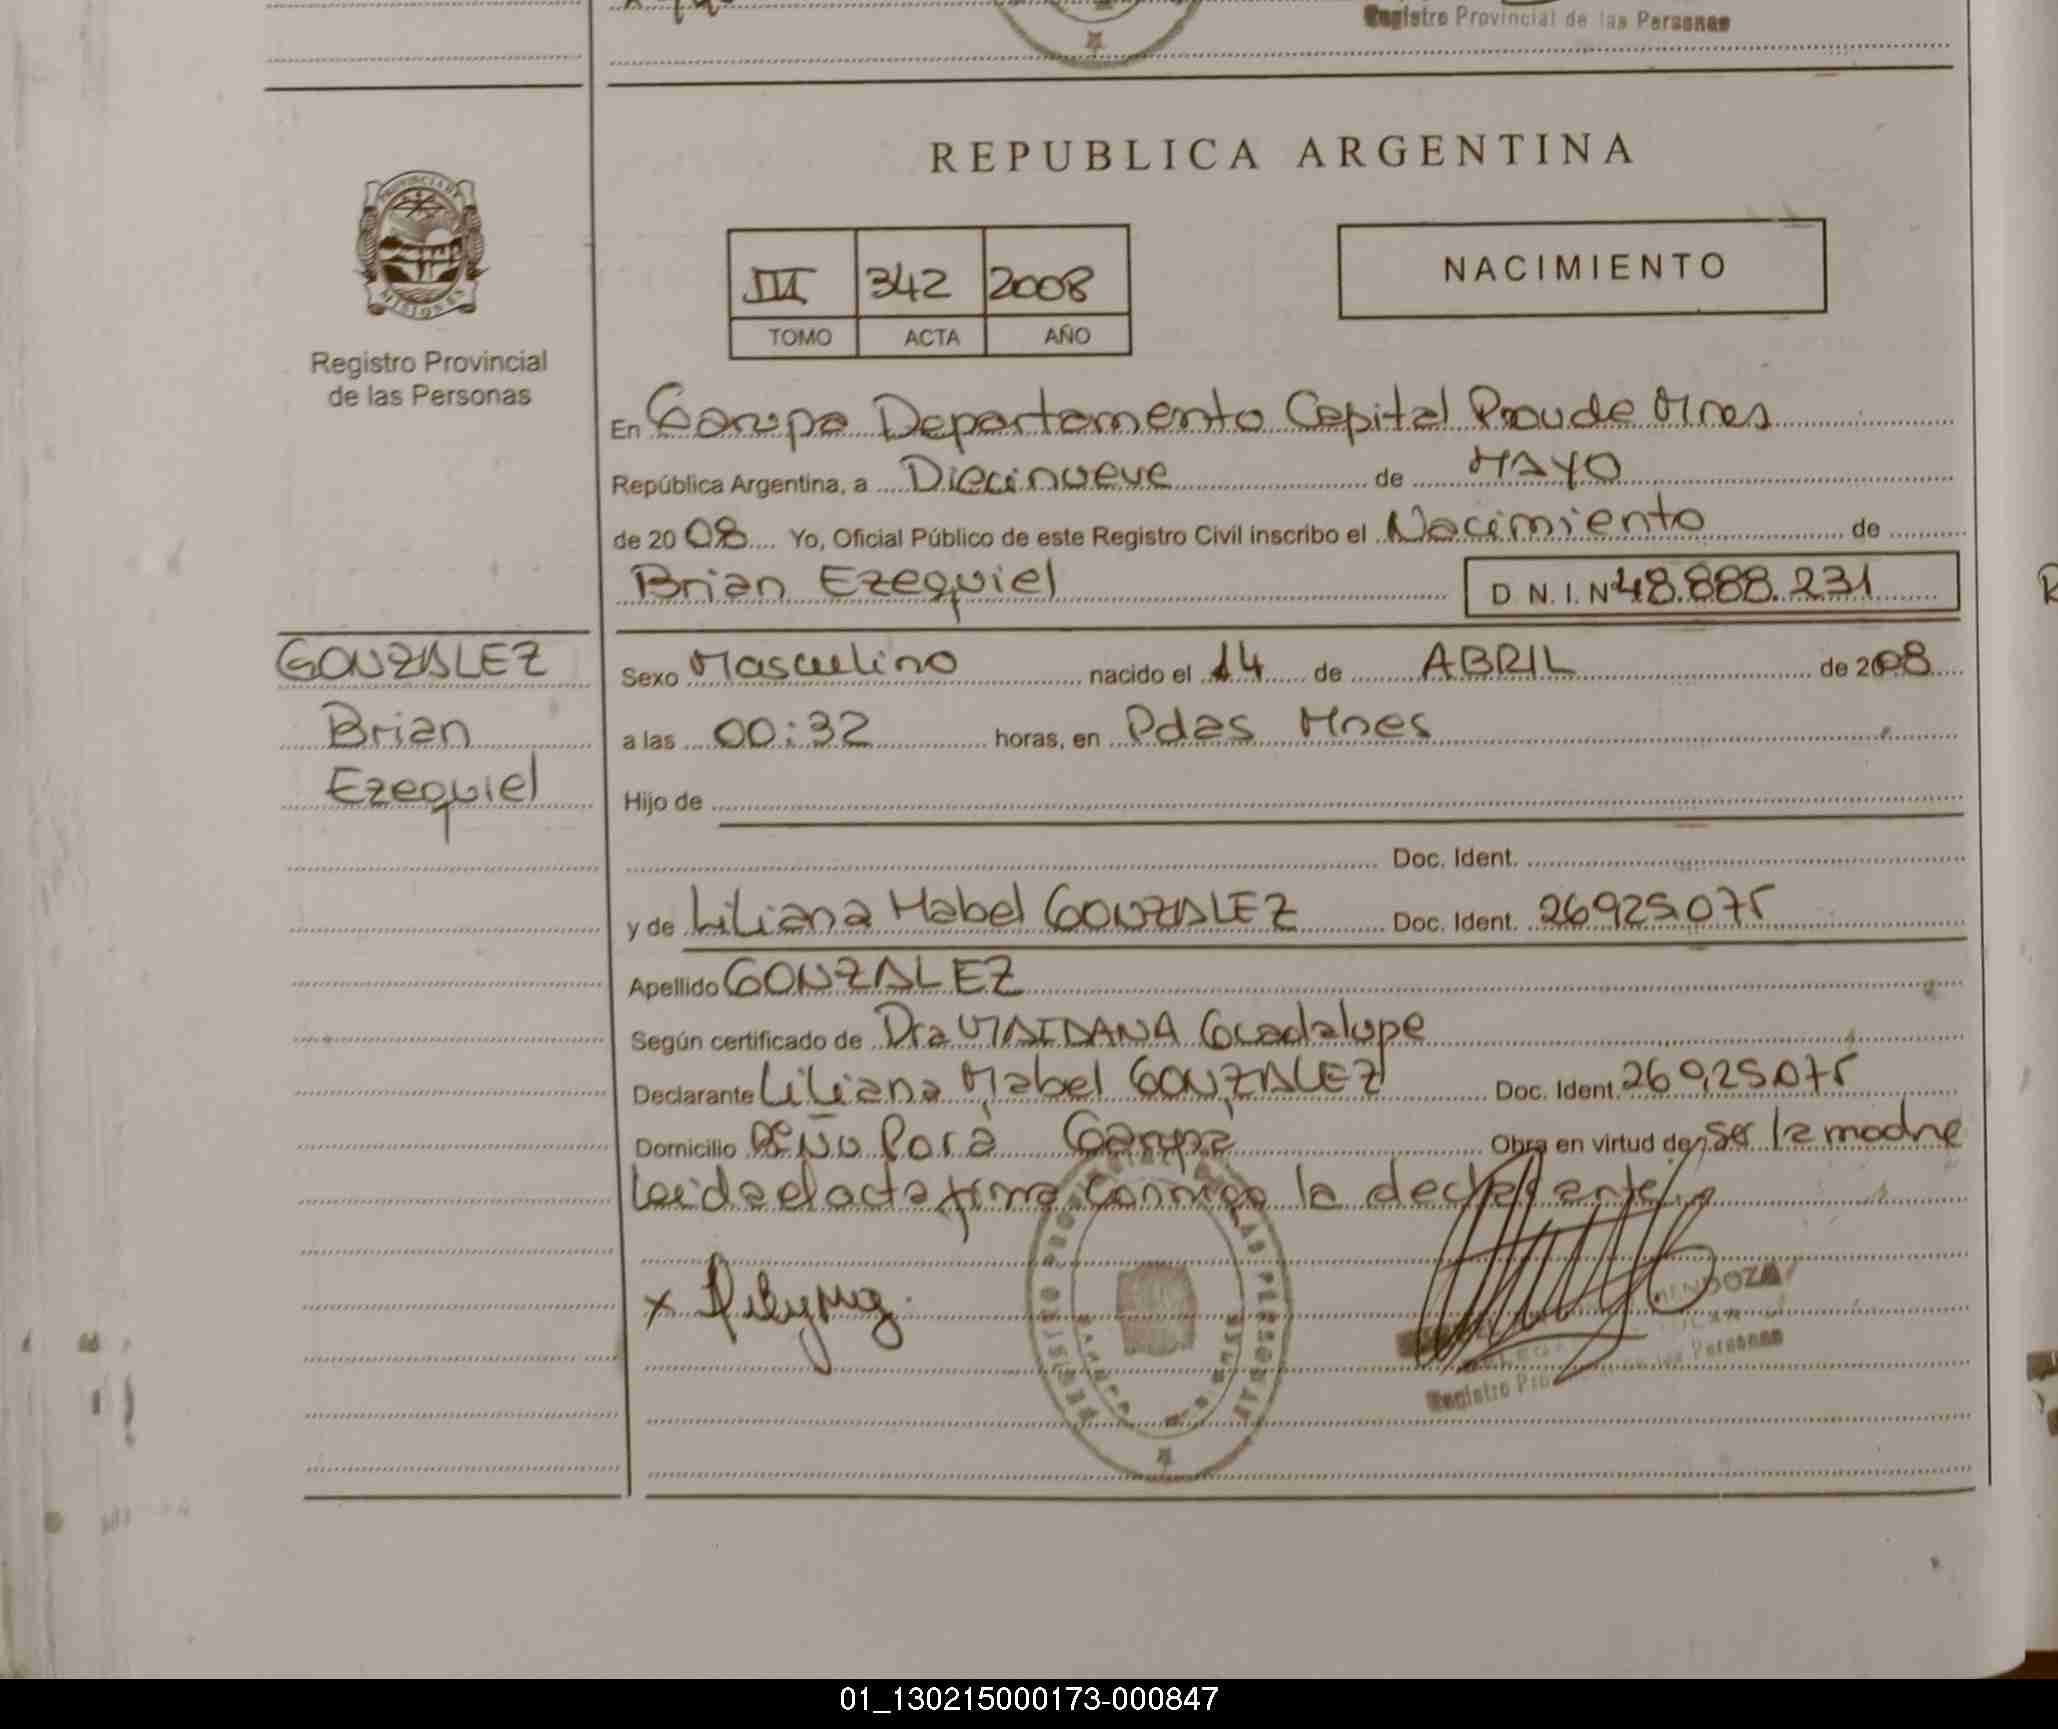 Registro Provincial de las Personas
PROVINCIA DE
MISIONES
Registro Provincial
de las Personas
REPUBLICA ARGENTINA
III 342 2008
TOMO ACTA AÑO
NACIMIENTO
En Garupa Departamento Capital Prov de Mnes
República Argentina, a Diecinueve de MAYO
de 20 08 Yo, Oficial Público de este Registro Civil inscribo el Nacimiento de
Brian Ezequiel D.N.I. Nº 48.888.231
GONZALEZ
Brian
Ezequiel
Sexo Masculino nacido el 14 de ABRIL de 2008
a las 00:32 horas, en Pdas Mnes
Hijo de
Doc. Ident.
y de Liliana Mabel GONZALEZ Doc. Ident. 26925.075
Apellido GONZALEZ
Según certificado de Dra MAIDANA Guadalupe
Declarante Liliana Mabel GONZALEZ Doc. Ident. 26925.075
Domicilio Bº Ñu Porá Garupá Obra en virtud de ser la madre
Leida el acta firma conmigo la declarante
x
MENDOZA
Registro las Personas
01_130215000173-000847